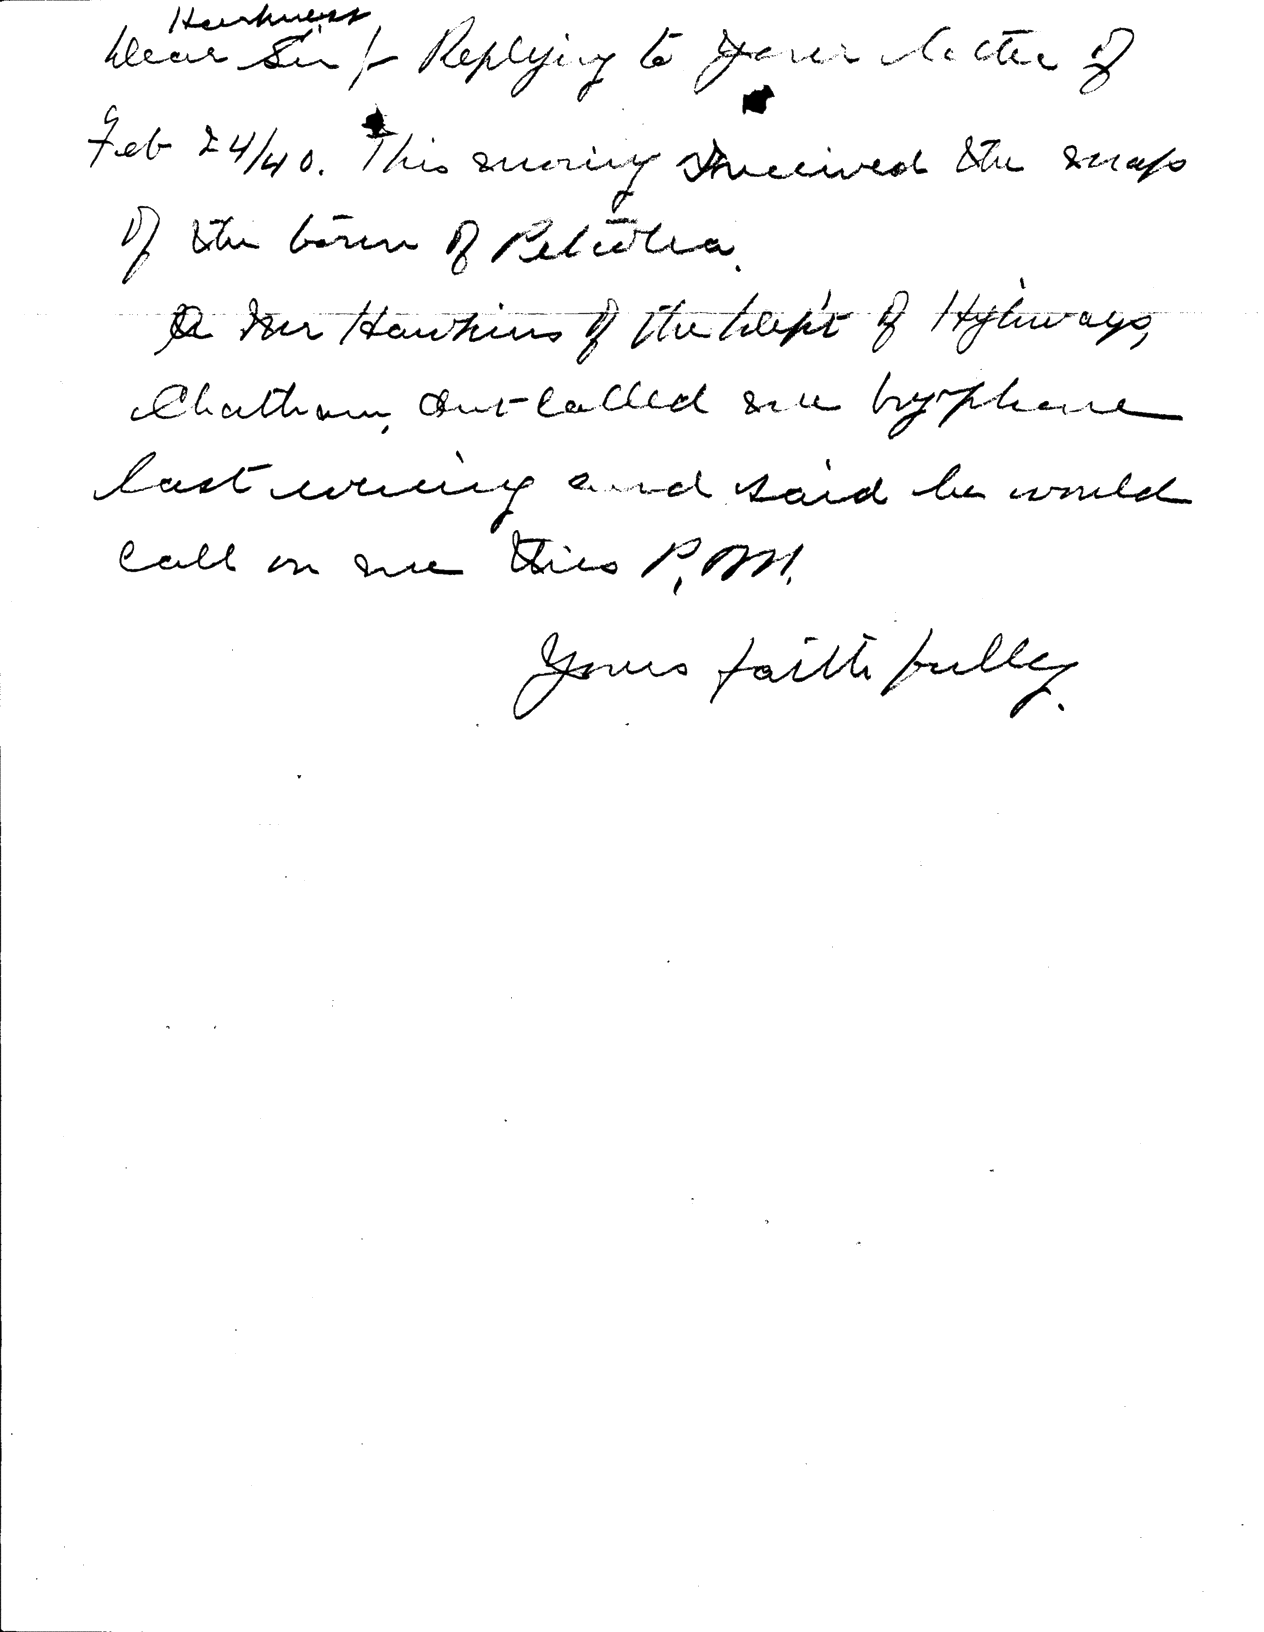 Harkness
Dear Sir/- Replying to your letter of
Feb 24/40. This morning received the maps
of the town of Petrolia.
A Mr Hawkins of the Dep't of Highways,
Chatham, Ont called me by phone
last evening and said he would
call on me this P.M.
Yours faithfully.